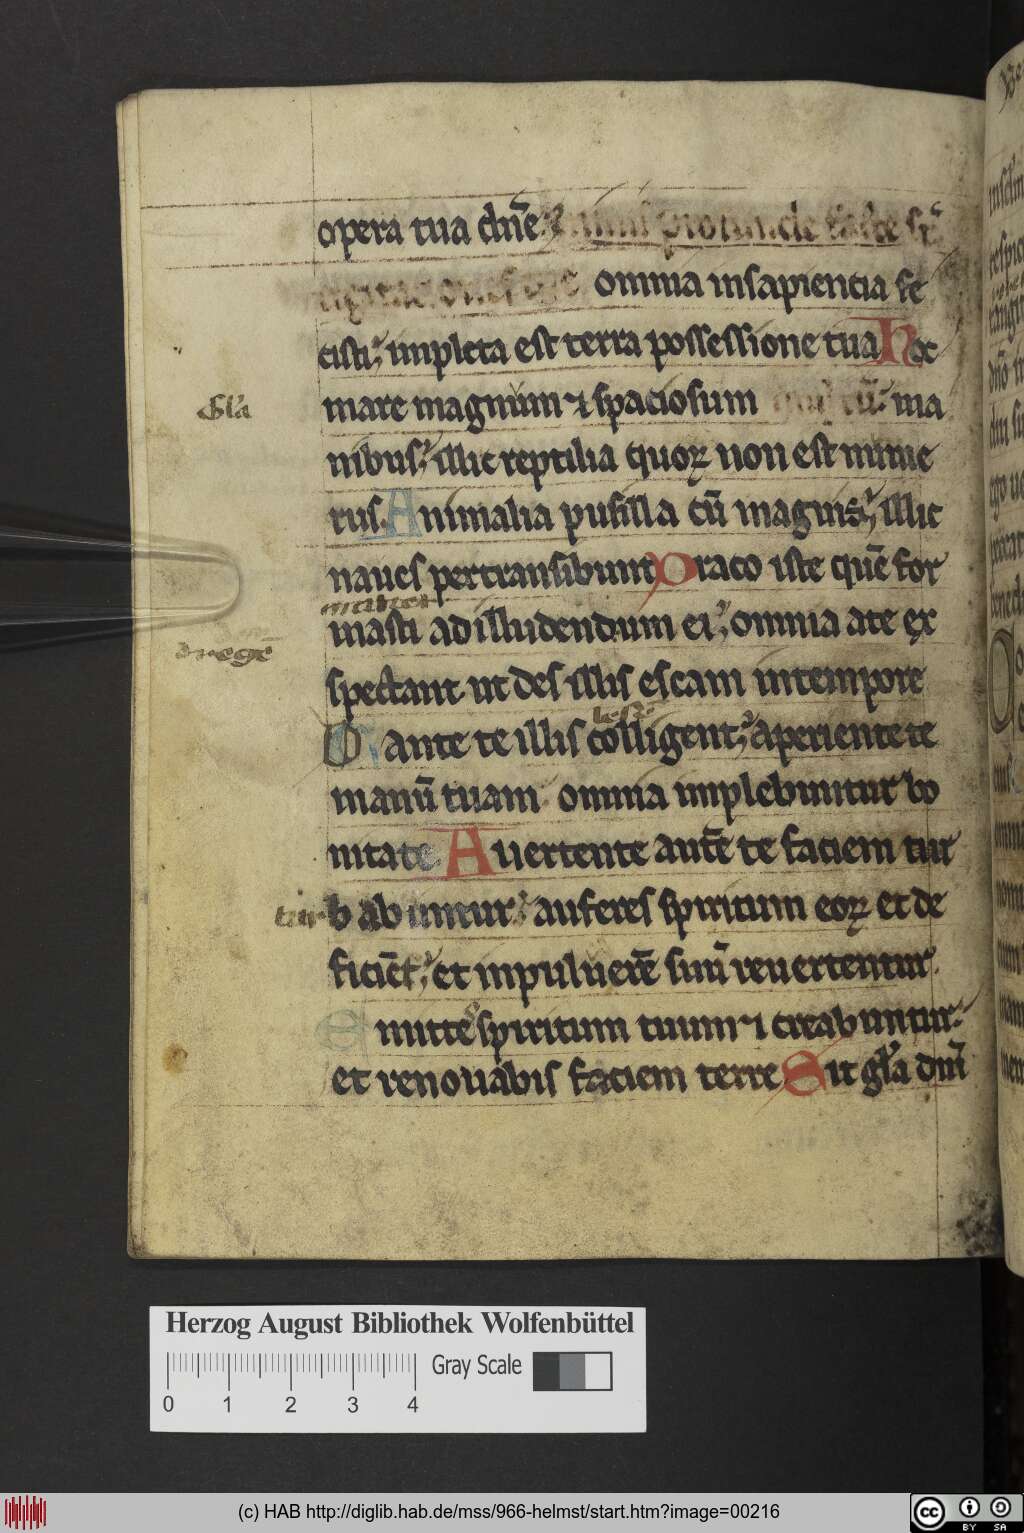 opera tua dn̄e
omnia insapientia fe
cisti; impleta est terra possessione tua Hoc
mare magnum ⁊ spaciosum ma
Gl'a
nibus; illic reptilia quoꝝ non est nume
rus. Animalia pusilla cū magnis; illic
naues pertransibunt Draco iste quē for
masti ad illudendum ei; omnia a te ex
spectant ut des illis escam in tempore
Dante te illis colligent; aperiente te
manū tuam omnia implebuntur bo
nitate Auertente aut̄ te faciem tur
tur
babuntur; auferes spiritum eoꝝ et de
ficiēt; et in puluerē suū reuertentur.
Emitte spiritum tuum ⁊ creabuntur;
et renouabis faciem terre Sit gl'a dn̄i
Herzog August Bibliothek Wolfenbüttel
Gray Scale
0 1 2 3 4
(c) HAB http://diglib.hab.de/mss/966-helmst/start.htm?image=00216
cc BY SA